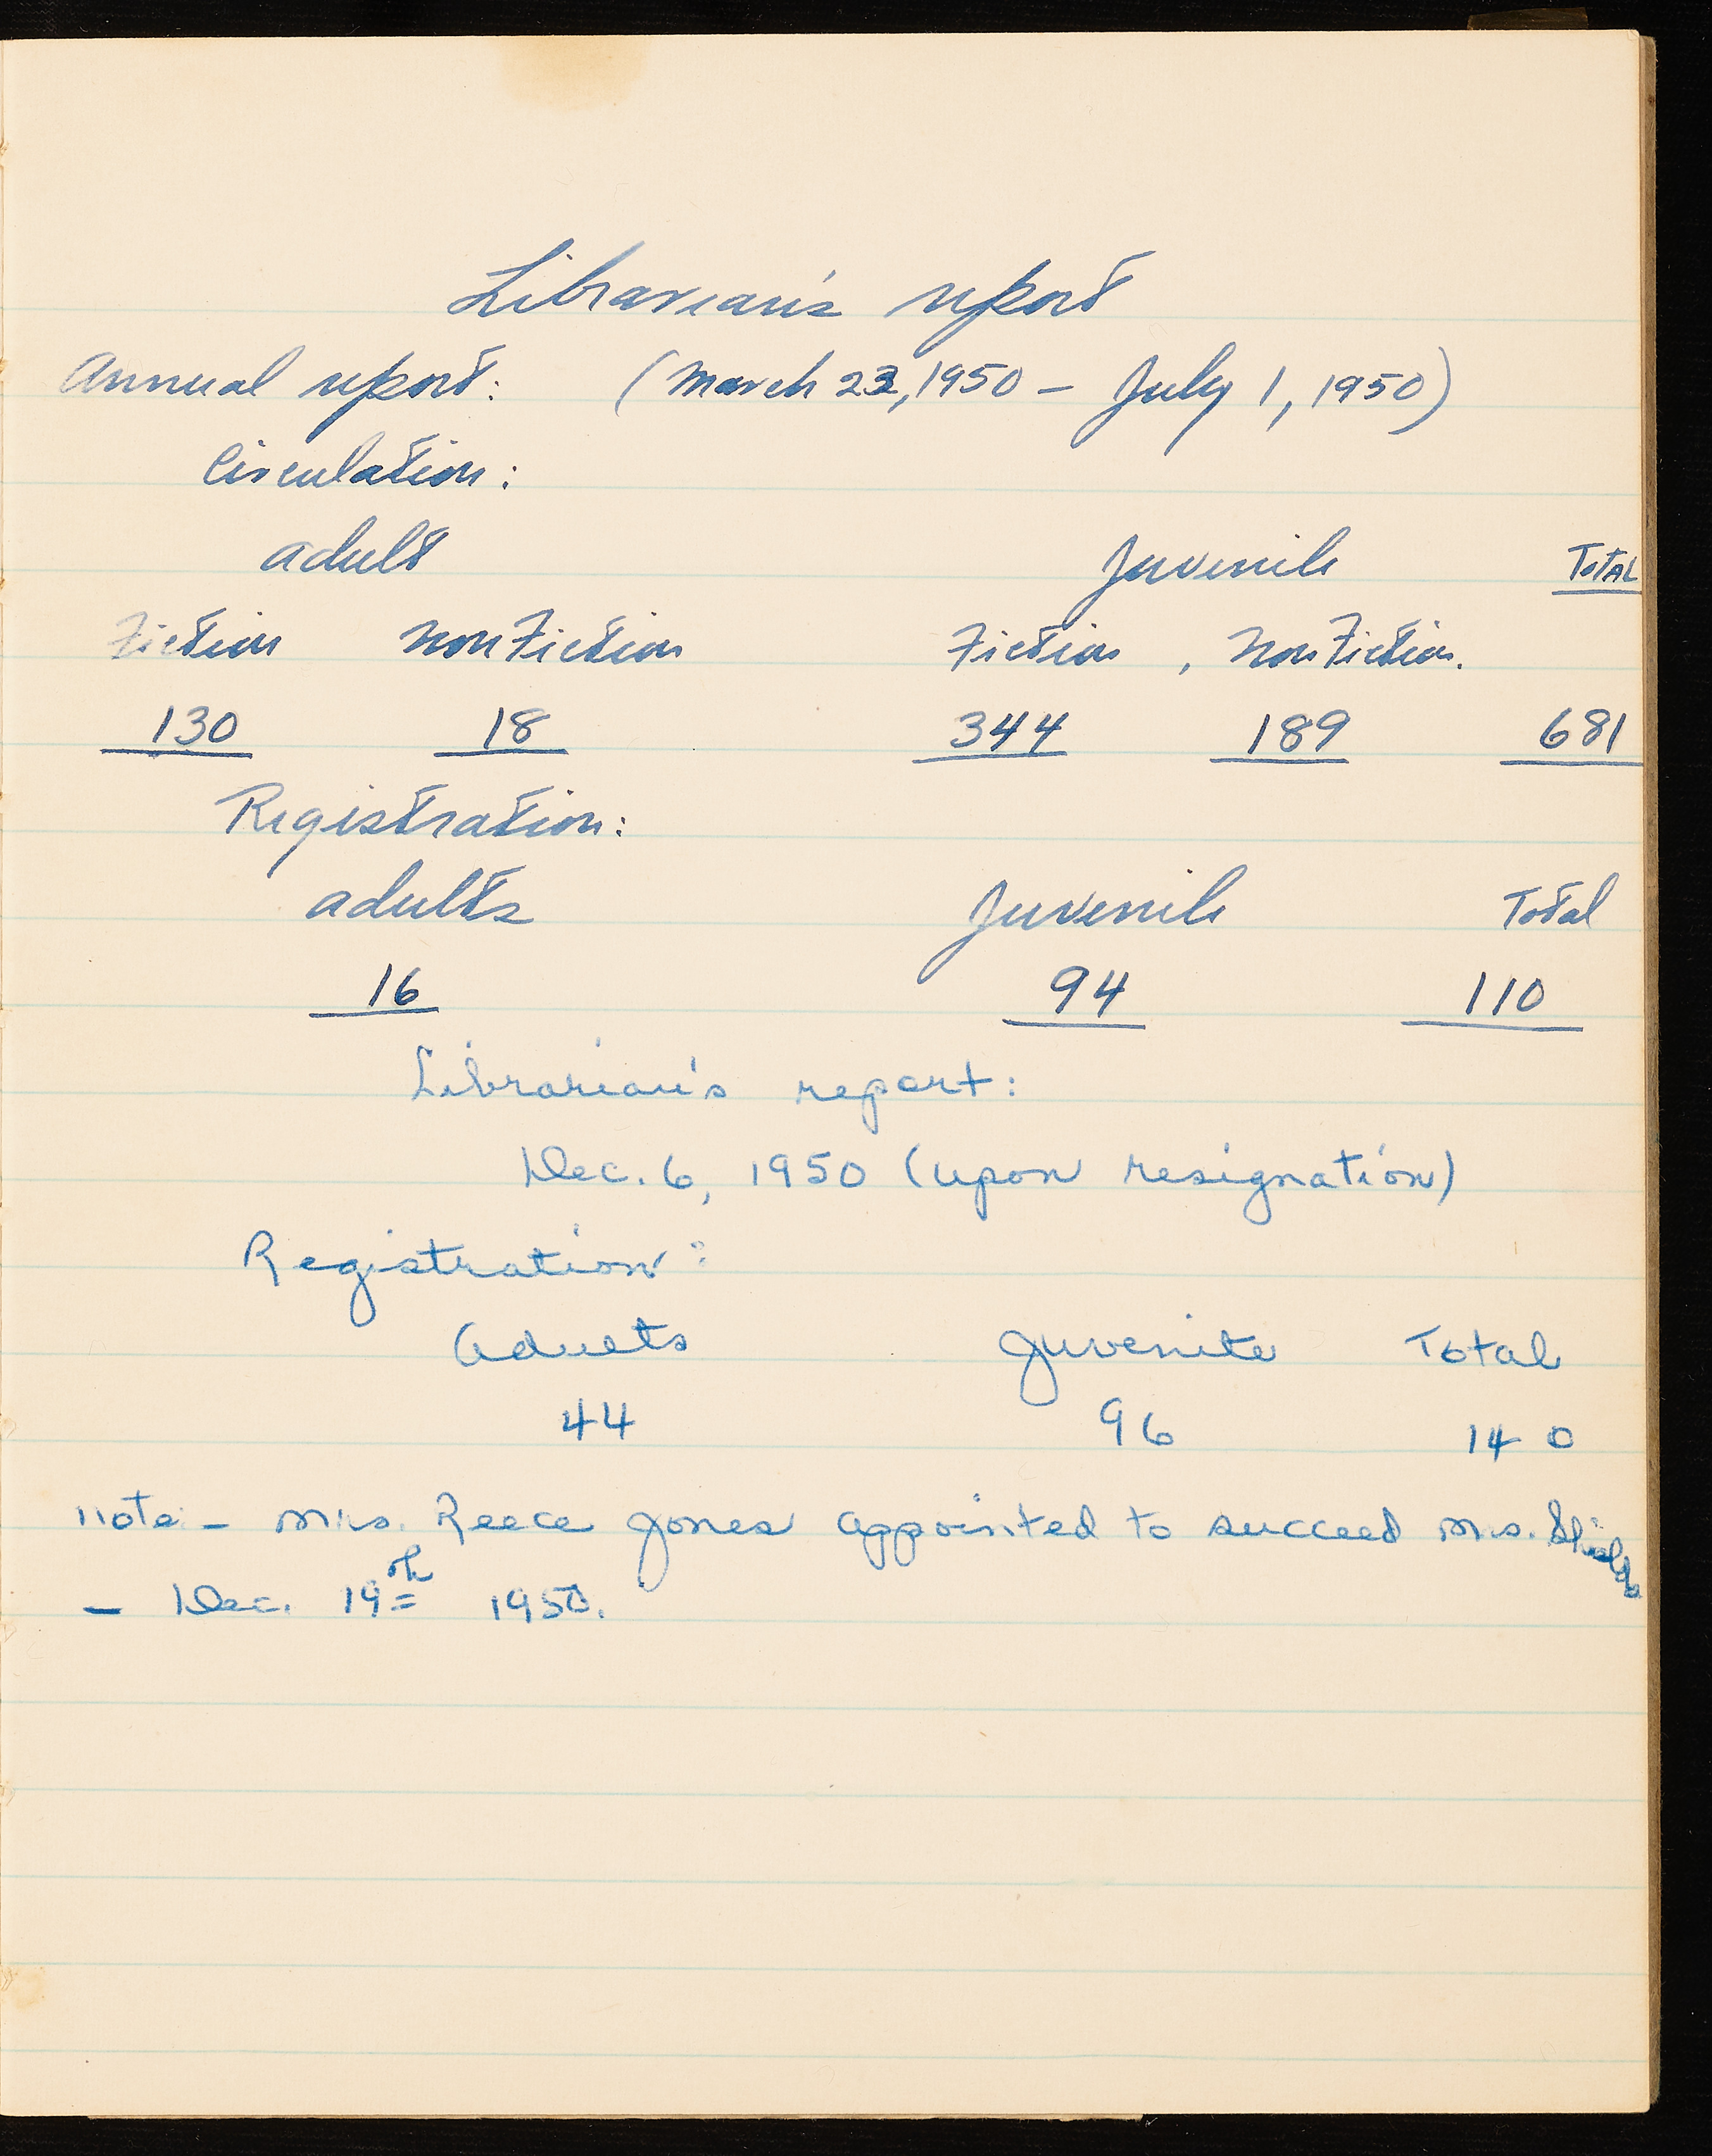 Librarian's report
Annual report: (March 23, 1950 - July 1, 1950)
Circulation:
Adult Juvenile TOTAL
Fiction Non Fiction Fiction, Non Fiction.
130 18 344 189 681
Registration:
Adults Juvenile Total
16 94 110
Librarian's report:
Dec. 6, 1950 (upon resignation)
Registration:
Adults Juvenile Total
44 96 140
Note - Mrs. Reece Jones appointed to succeed Mrs. Shields
- Dec. 19th 1950.